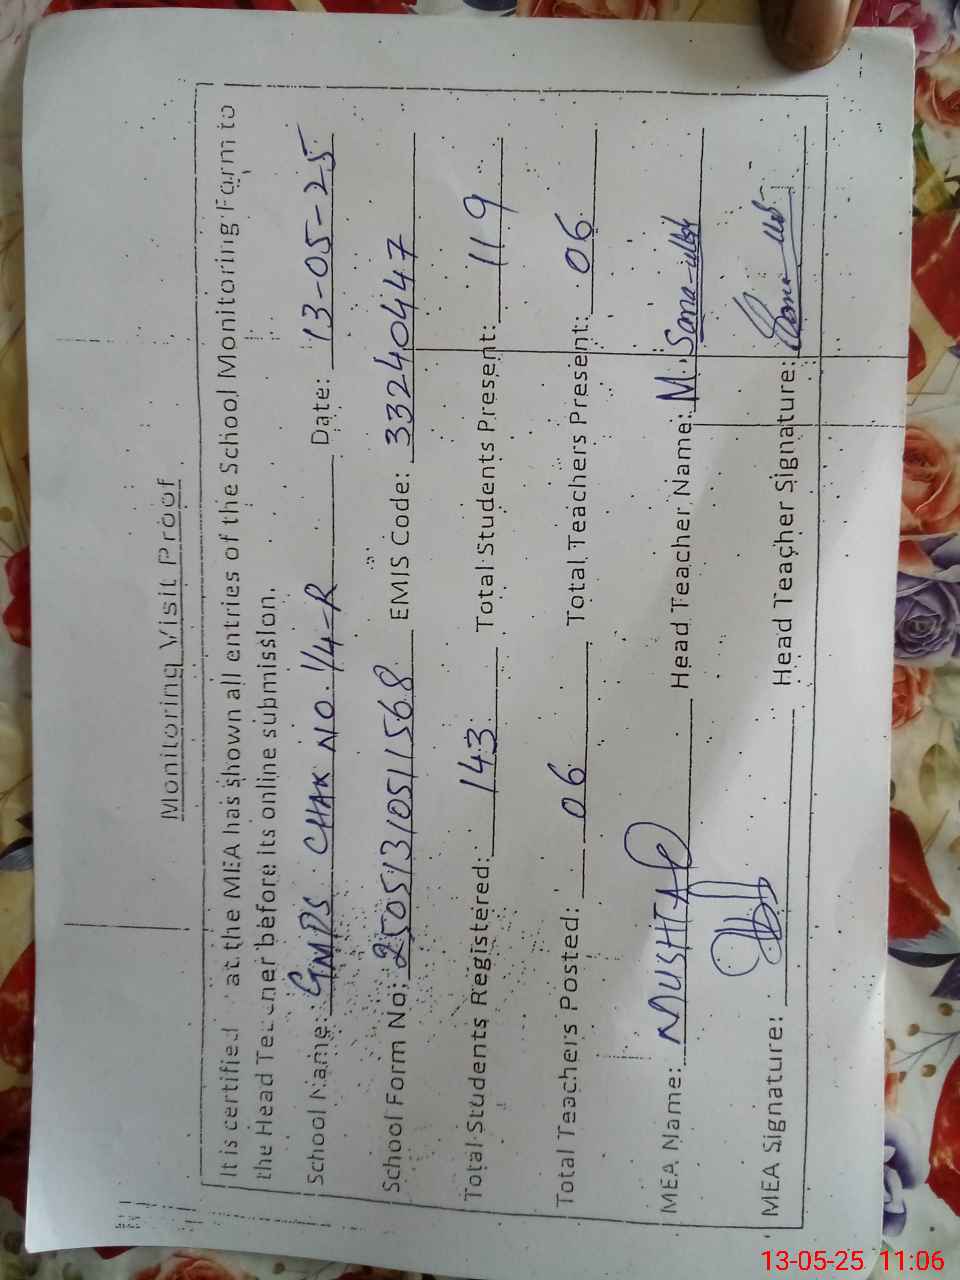 Monitoring Visit Proof
It is certified at the MEA has shown all entries of the School Monitoring Form to
the Head Teacher before its online submission.
School Name: GMPS CHAK NO. 1/4-R Date: 13-05-25
School Form No: 25051310511568 EMIS Code: 33240447
Total Students Registered: 143 Total Students Present: 119
Total Teachers Posted: 06 Total Teachers Present: 06
MEA Name: MUSHTAQ Head Teacher Name: M. Sana-ullah
MEA Signature: Head Teacher Signature:
13-05-25 11:06